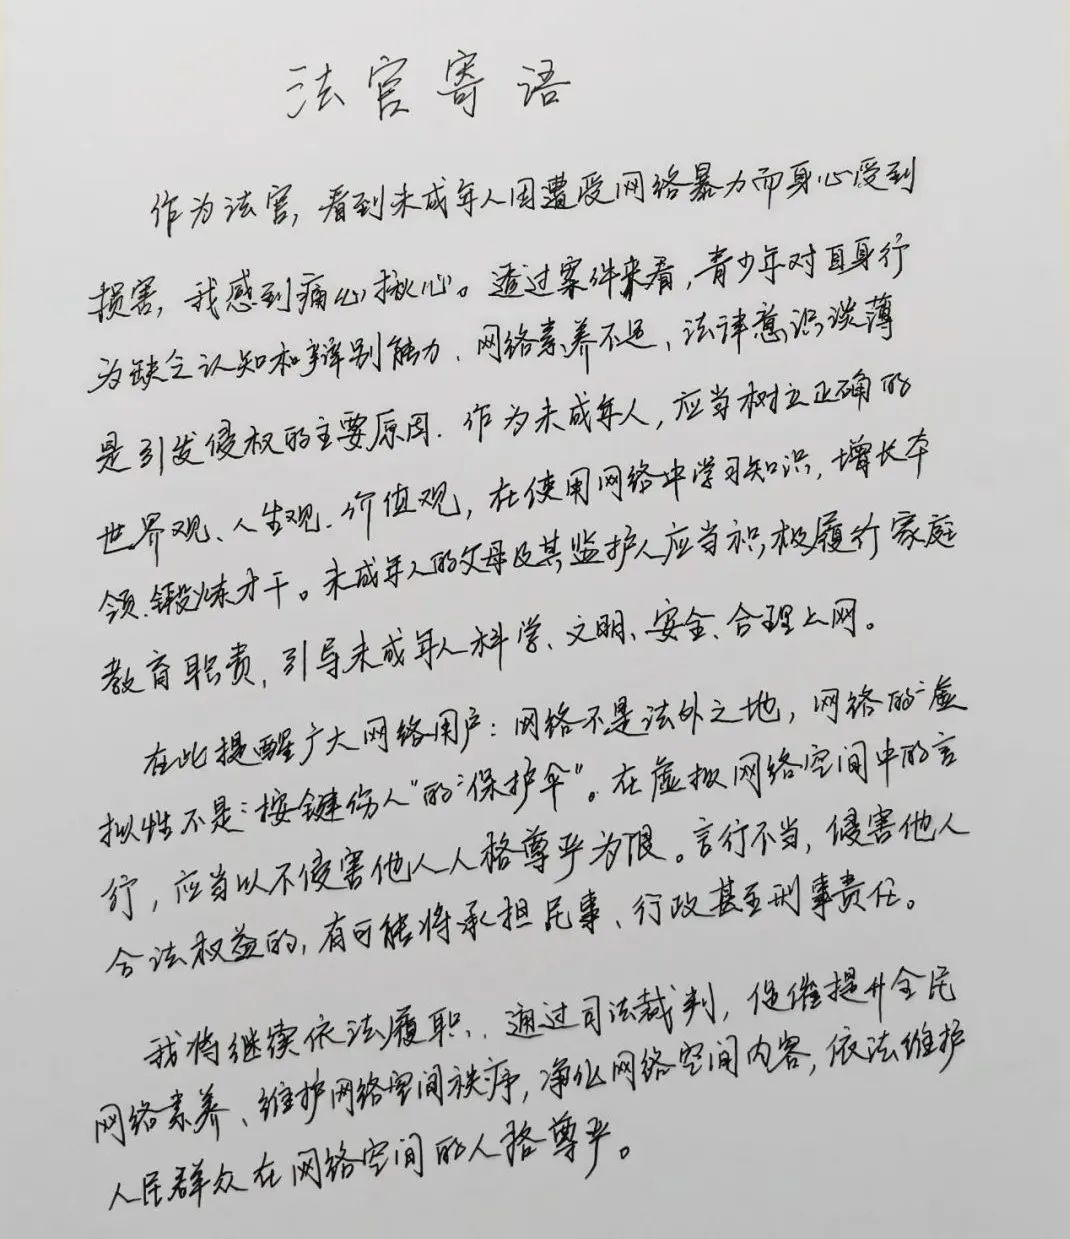 法官寄语
作为法官，看到未成年人因遭受网络暴力而身心受到
损害，我感到痛心揪心。透过案件来看，青少年对自身行
为缺乏认知和辩别能力、网络素养不足、法律意识淡薄
是引发侵权的主要原因．作为未成年人，应当树立正确的
世界观、人生观、价值观，在使用网络中学习知识，增长本
领、锻炼才干。未成年人的父母及其监护人应当积极履行家庭
教育职责，引导未成年人科学、文明、安全、合理上网。
在此提醒广大网络用户：网络不是法外之地，网络的“虚
拟性不是“按键伤人”的“保护伞”。在虚拟网络空间中的言
行，应当以不侵害他人人格尊严为限。言行不当，侵害他人
合法权益的，有可能将承担民事、行政甚至刑事责任。
我将继续依法履职，通过司法裁判，促催提升全民
网络素养、维护网络空间秩序，净化网络空间内容，依法维护
人民群众在网络空间的人格尊严。